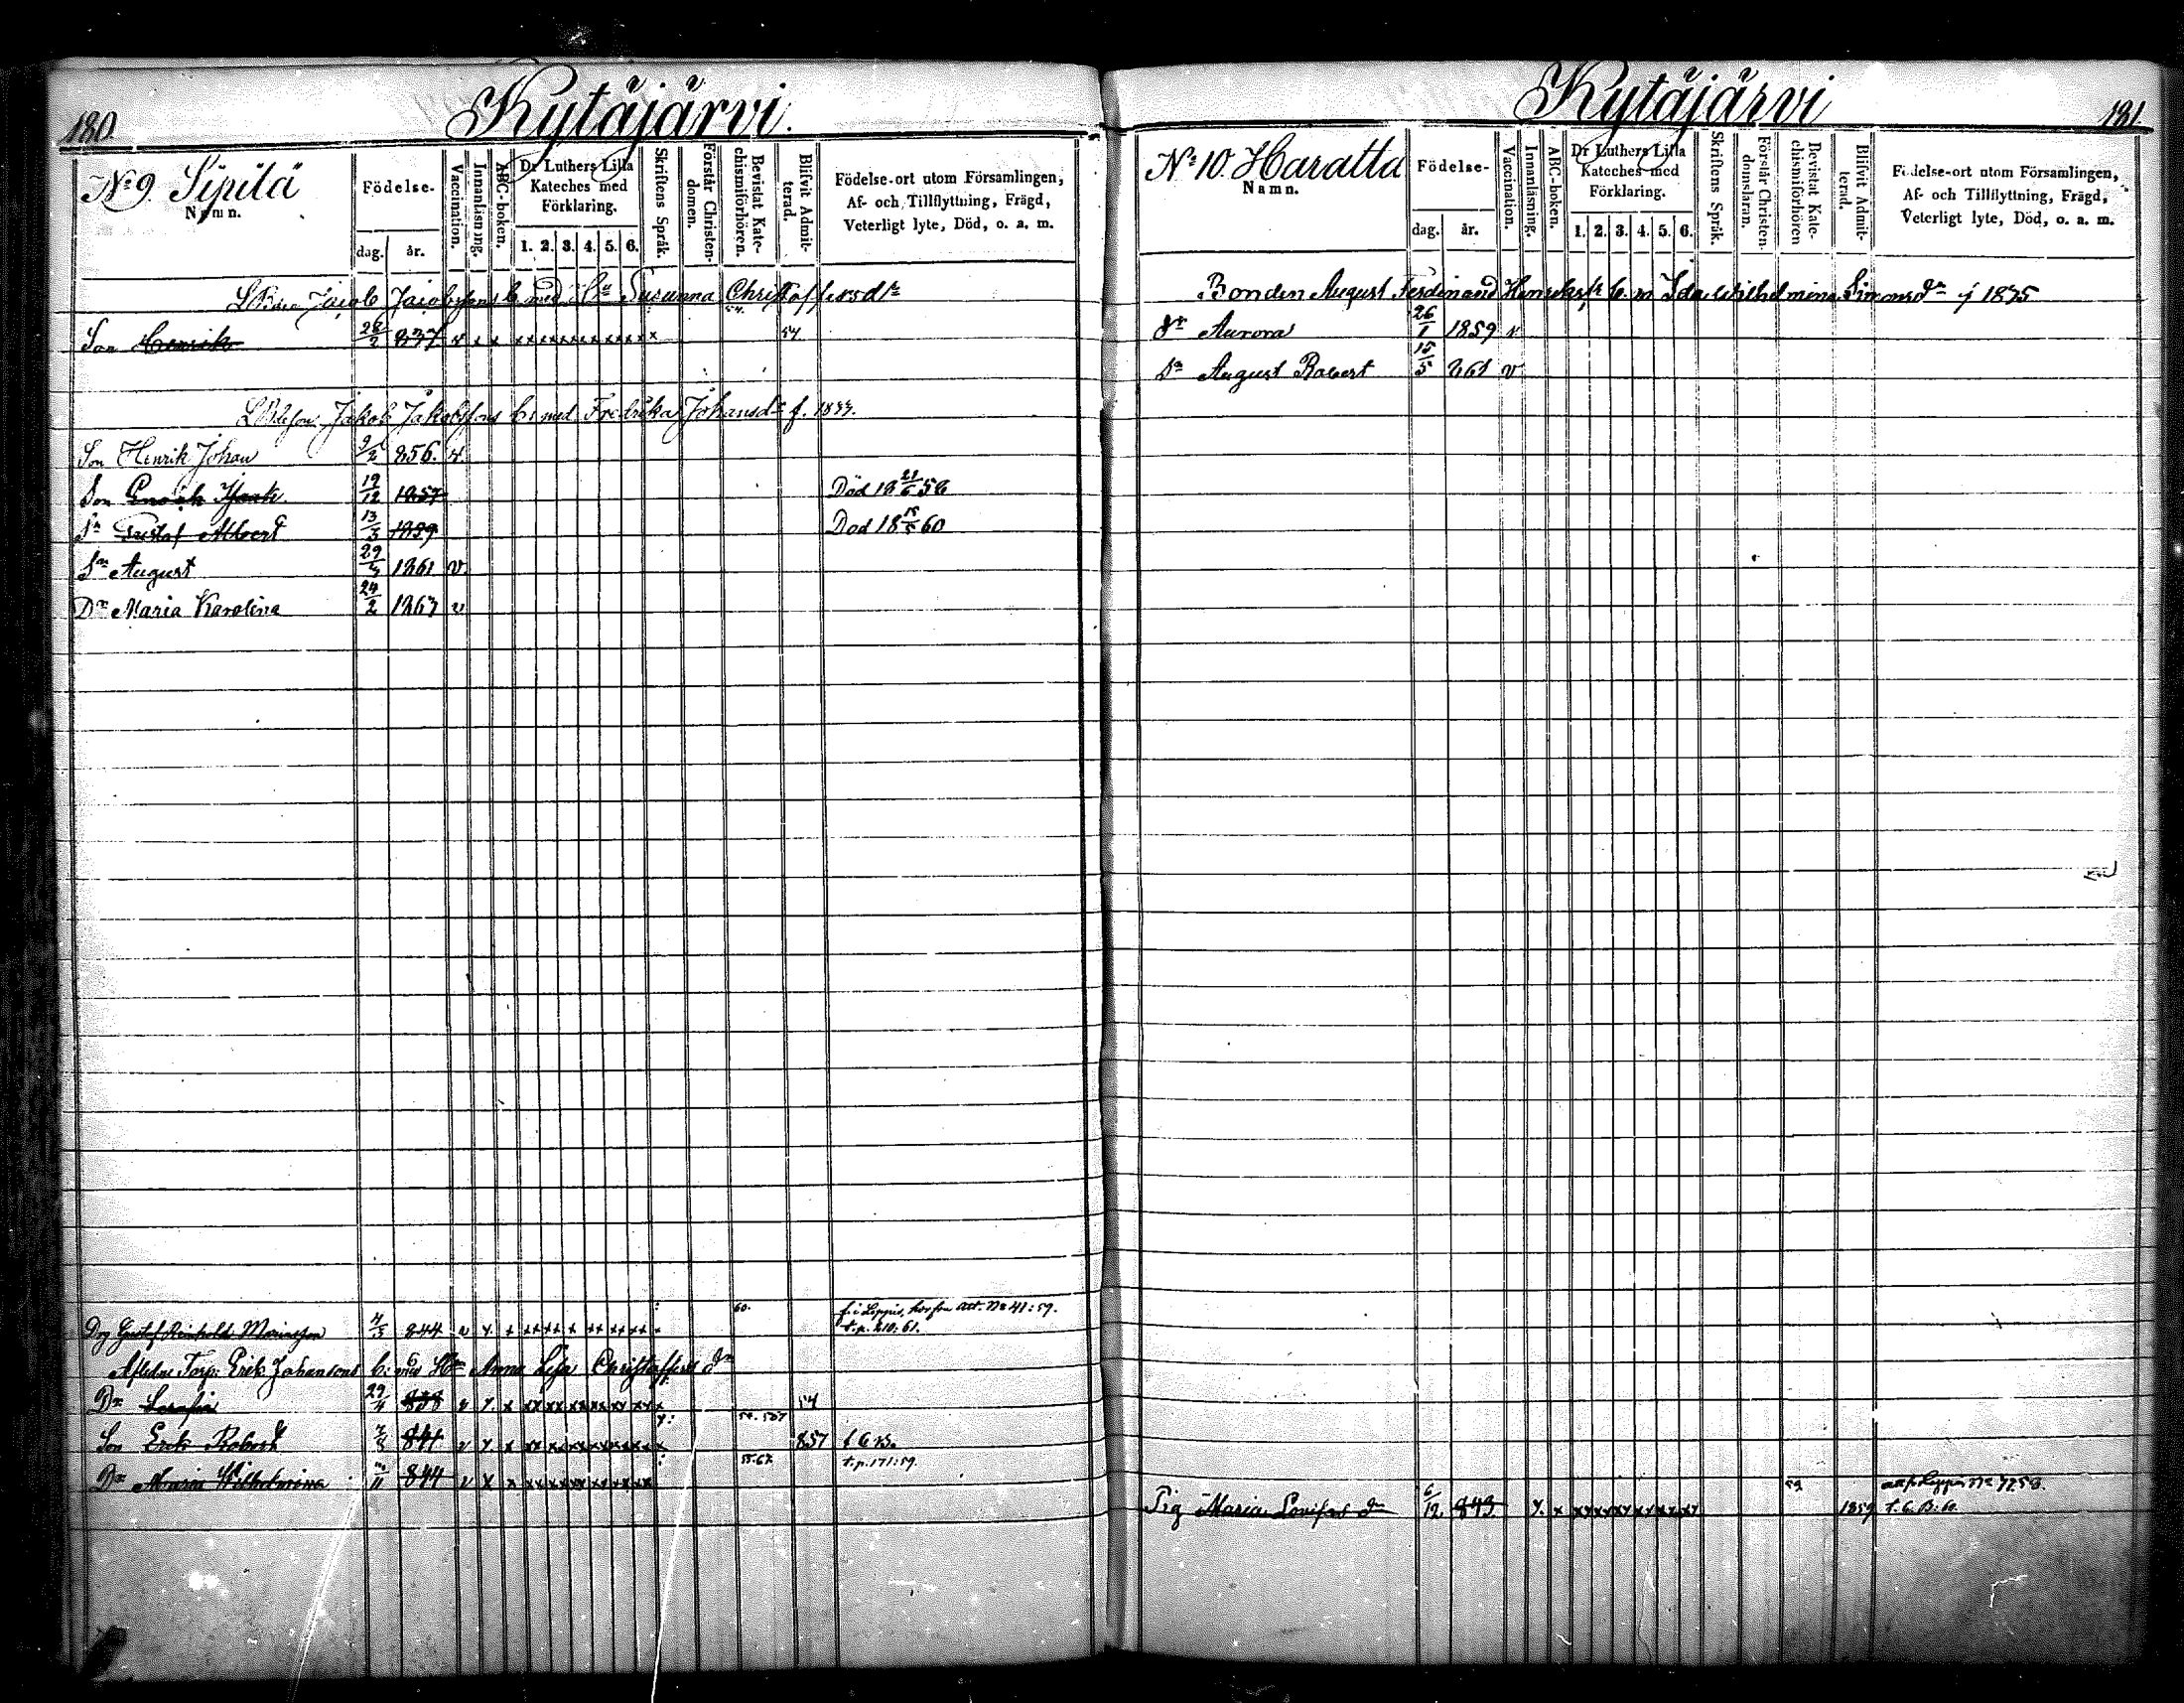 180.
Kytäjärvi.
No 9. Sipilä
Namn.
Födelse-
dag.
år.
Vaccination.
Innanläsning.
ABC-boken.
Dr Luthers Lilla
Kateches med
Förklaring.
1. 2. 3. 4. 5. 6.
Skriftens Språk.
Förstår Christendomen.
Bevistat Katechismiförhören.
Blifvit Admitterad.
Födelse-ort utom Församlingen,
Af- och Tillflyttning, Frägd,
Veterligt lyte, Död, o. a. m.
Jacob Jacobssons b. med Susanna Christoffersdr
54.
Son Henrik 28/2 837 v x x xxxxxxxxxxxx x 54.
Jakob Jakobssons b. med Fredrika Johansdr f. 1833.
Son Henrik Johan 9/2 856. v.
Son Enoch Isaak 19/12 1857 Död 18 21/6 58
Sn Gustaf Albert 13/3 1859 Död 18 60
Sn August 29 1861 v.
Dr Maria Karolina 24/2 1863 v
60.
Loppis, att. No 41:59.
Drg Gustaf Reinhold 844 v x x xx xx x xx xx xx x t.p. 210:61.
Aflidne Torp: Erik Johanssons b. med Anna Lisa Christoffers dr
Dr 29/4 838 v x x xx xx xx xx xx xx x 54
Son Erik Robert 841 v x x xx xx xx xx xx xx x 857
55.62 t.p. 171:59.
Dr Maria Wilhelmina 844 v x x xx xx xx xx xx xx
Kytäjärvi
181.
No 10. Haratta
Namn.
Födelse-
dag.
år.
Vaccination.
Innanläsning.
ABC-boken.
Dr Luthers Lilla
Kateches med
Förklaring.
1. 2. 3. 4. 5. 6.
Skriftens Språk.
Förstår Christendomsläran.
Bevistat Katechismiförhören
Blifvit Admitterad.
Födelse-ort utom Församlingen,
Af- och Tillflyttning, Frägd,
Veterligt lyte, Död, o. a. m.
Bonden August Ferdinand Henrikss b. m. Ida Wilhelmina Simonsdr f 1835
Dr Aurora 26/1 1859 v
Sn August Robert 15/5 861 v
59
Pig Maria Lovisas dr 6/12 843 x x xx xx xx xx xx xx 1859